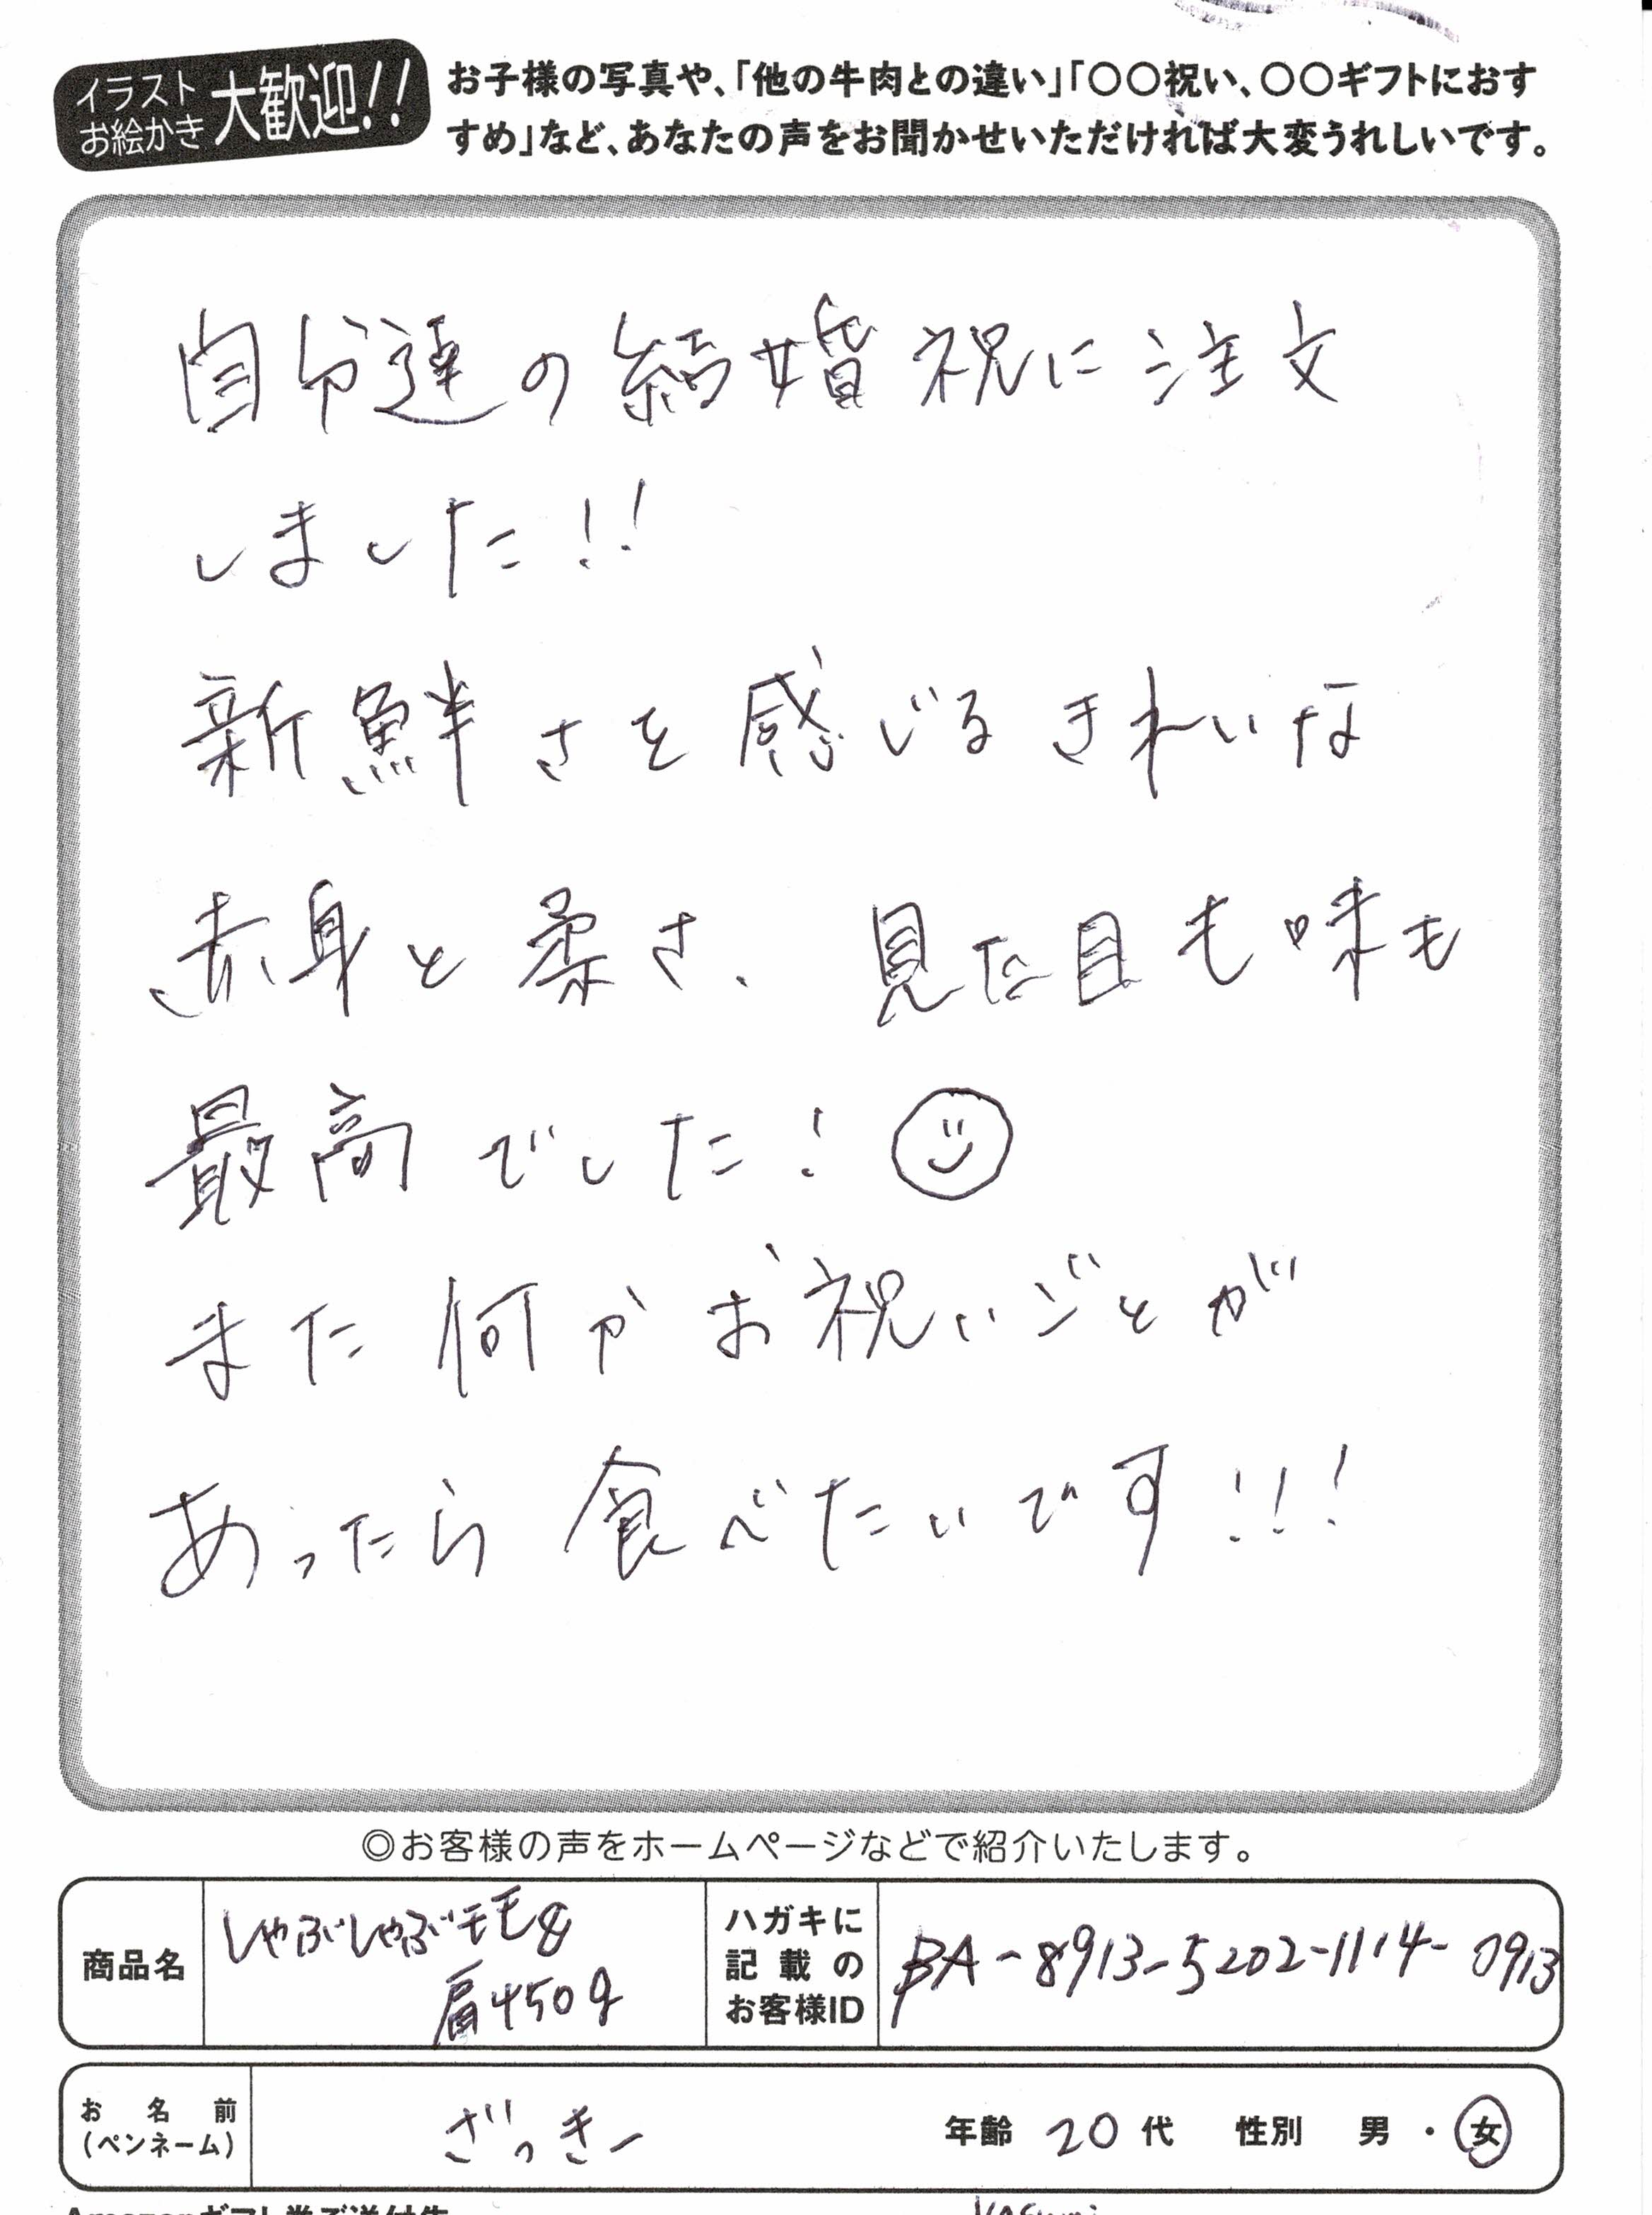 イラスト
お絵かき
大歓迎!!
お子様の写真や、「他の牛肉との違い」「〇〇祝い、〇〇ギフトにおす
すめ」など、あなたの声をお聞かせいただければ大変うれしいです。
自分達の結婚祝に注文
しました!!
新鮮さを感じるきれいな
赤身と柔さ、見た目も味も
最高でした!
また何かお祝いごとが
あったら食べたいです!!!
◎お客様の声をホームページなどで紹介いたします。
商品名
しゃぶしゃぶモモ&
肩450g
ハガキに
記載の
お客様ID
BA-8913-5202-1114-0913
お名前
(ペンネーム)
ざっきー
年齢 20代 性別 男・女